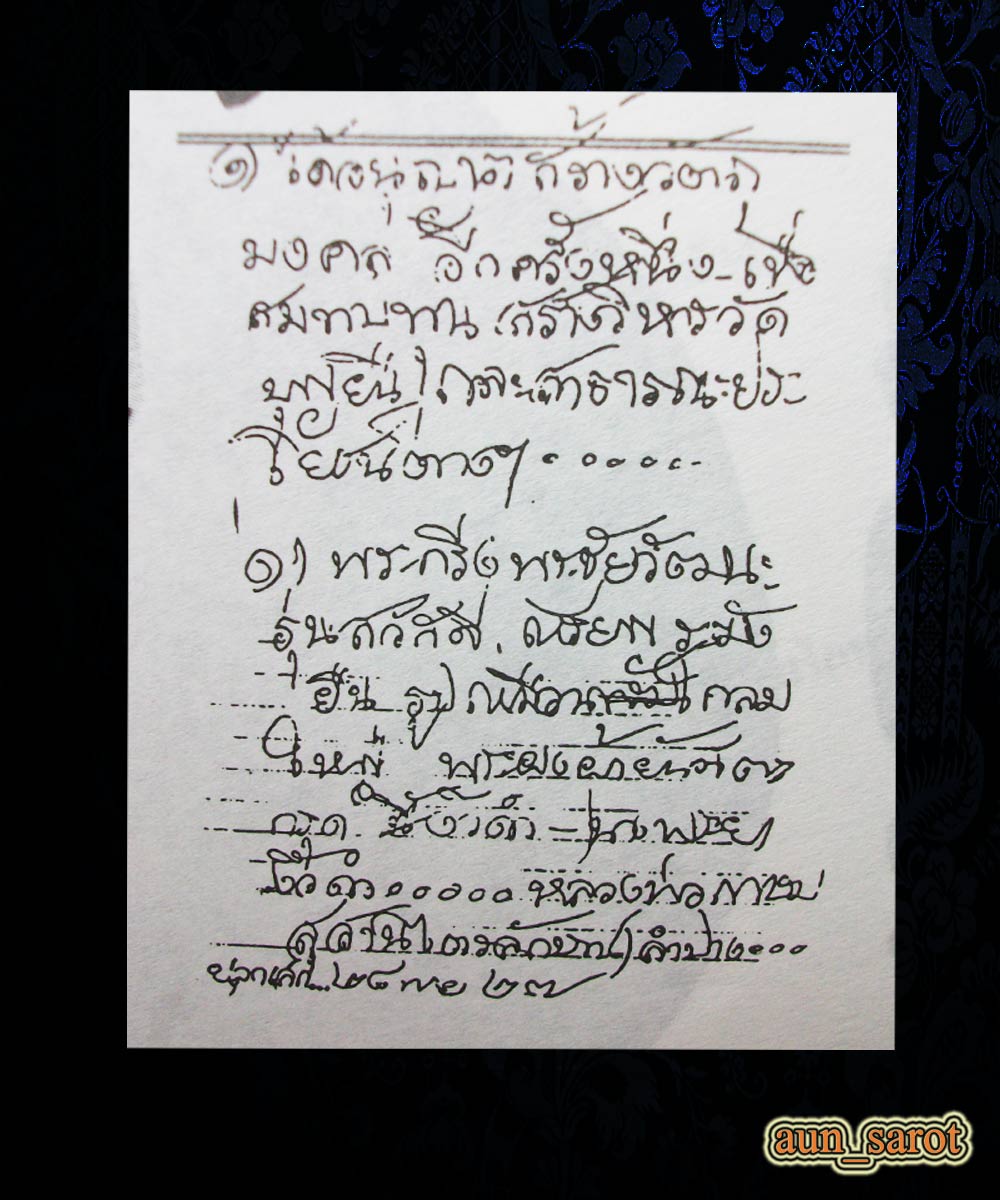 ๑) ได้อนุญาติสร้างวัตถุ
มงคล อีกครั้งหนึ่ง เพื่อ
สมทบทุน สร้างวิหารวัด
บุญยืน และสาธารณะประ
โยชน์ต่างๆ ......
๑) พระกริ่งพระชัยวัฒนะ
รุ่นสวัสดี, เหรียญระฆัง
ยืน รูปเหมือน กลม
ใหญ่ พระผง
งิ้วดำ
งิ้วดำ ...... หลวงพ่อเกษม
สุสานไตรลักษณ์ ลำปาง...
ปลุกเสก...๒๘ พย ๒๗
aun_sarot